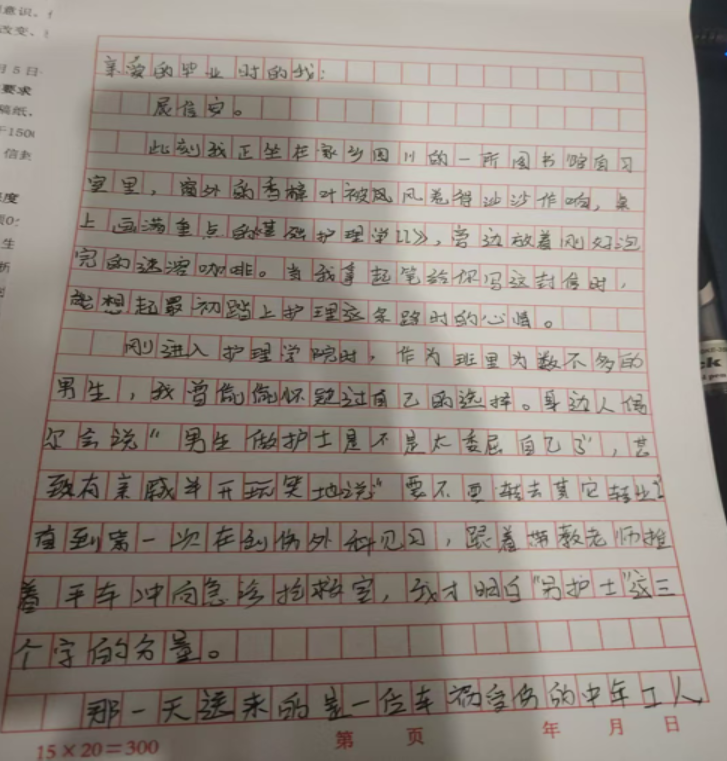 意识、
改变、
月5日
要求
稿纸。
于150
信封
度
生
亲爱的毕业时的我:
展信安。
此刻我正坐在家乡四川的一所图书馆自习
室里,窗外的香樟叶被风风卷得沙沙作响,桌
上画满重点的《基础护理学II》,旁边放着刚好泡
完的速溶咖啡。当我拿起笔给你写这封信时,
总想起最初踏上护理这条路时的心情。
刚进入护理学院时,作为班里为数不多的
男生,我曾偷偷怀疑过自己的选择。身边人偶
尔会说“男生做护士是不是太委屈自己了”,甚
至有亲戚半开玩笑地说“要不要转去其它专业?
直到第一次在创伤外科见习,跟着带教老师推
着平车冲向急诊抢救室,我才明白“男护士”这三
个字的分量。
那一天送来的是一位车祸受伤的中年工人
15×20=300 第 页 年 月 日
ck